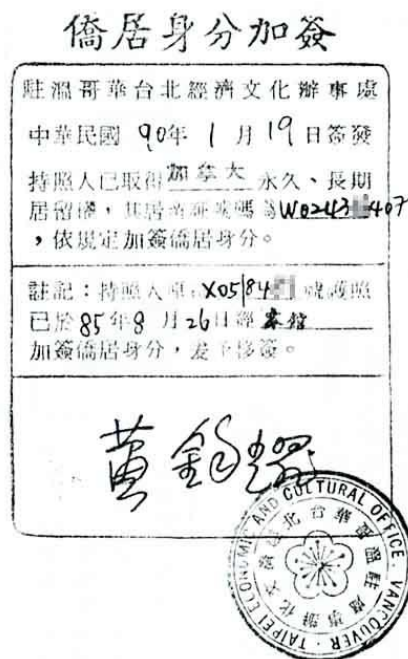 僑居身分加簽
駐溫哥華台北經濟文化辦事處
中華民國 90年 1 月 19 日簽發
持照人已取得 加拿大 永久、長期
居留權,其居留證號碼為W0243 407
,依規定加簽僑居身分。
註記:持照人原 X05184 號護照
已於 85年 8 月 26日經 本館
加簽僑居身分,茲予移簽。
黃
TAIPEI ECONOMIC AND CULTURAL OFFICE, VANCOUVER
駐溫哥華台北經濟文化辦事處